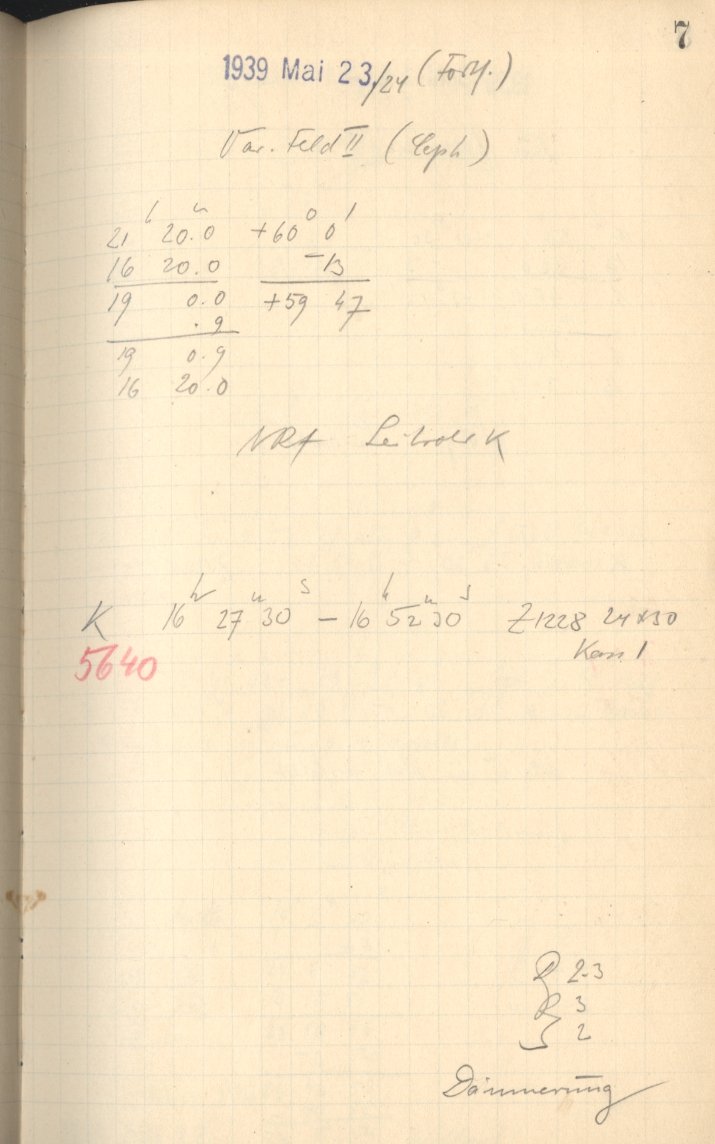 7
1939 Mai 23/24 (Forts.)
Var. Feld II (Ceph)
21 h 20.0 m +60° 0'
16 20.0 -13
19 0.0 +59 47
.9
19 0.9
16 20.0
Leitrohr K
K 16 h 27 m 30 s - 16 h 52 m 30 s Z1228 24x30
5640 Kass 1
2-3
3
2
Dämmerung